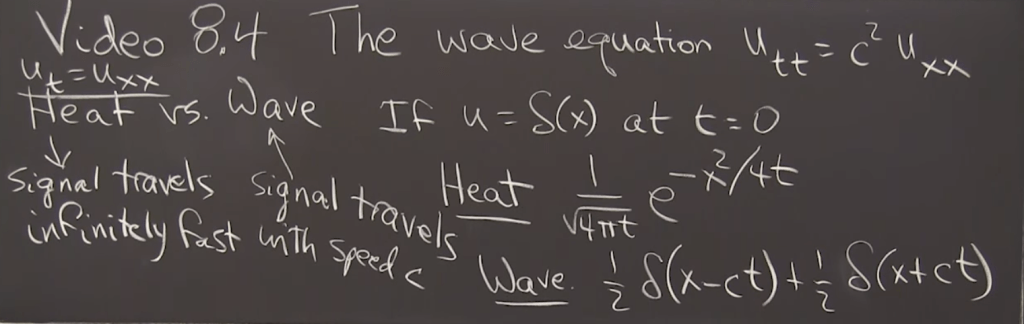 Video 8.4 The wave equation u_tt = c² u_xx
u_t = u_xx
Heat vs. Wave If u = δ(x) at t = 0
signal travels infinitely fast
signal travels with speed c
Heat 1/√4πt e^(-x²/4t)
Wave. 1/2 δ(x-ct) + 1/2 δ(x+ct)